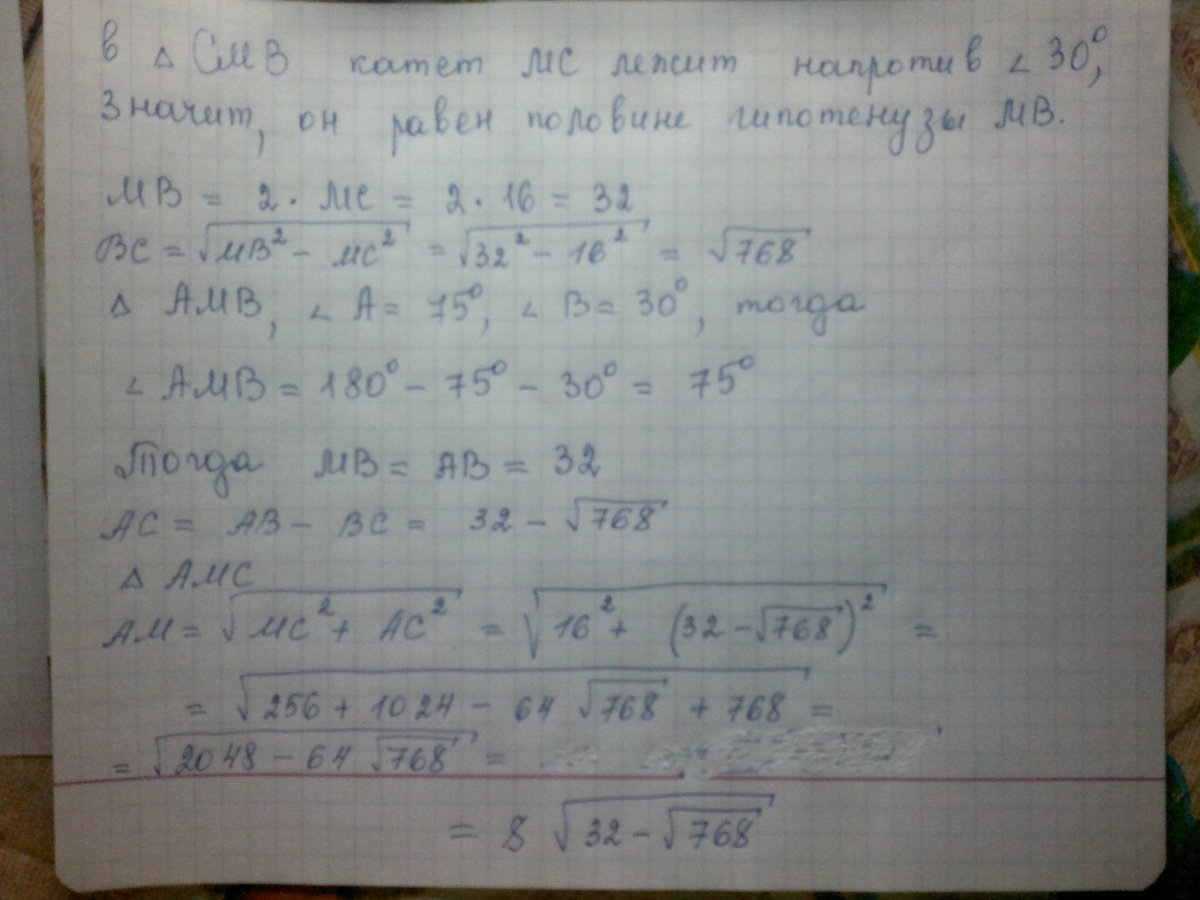 в △ CMB катет MC лежит напротив ∠ 30°,
Значит, он равен половине гипотенузы MB.
MB = 2 · MC = 2 · 16 = 32
BC = √(MB² − MC²) = √(32² − 16²) = √768
△ AMB, ∠ A = 75°, ∠ B = 30°, тогда
∠ AMB = 180° − 75° − 30° = 75°
Тогда MB = AB = 32
AC = AB − BC = 32 − √768
△ AMC
AM = √(MC² + AC²) = √(16² + (32 − √768)²) =
= √(256 + 1024 − 64 √768 + 768) =
= √(2048 − 64 √768) =
= 8 √(32 − √768)